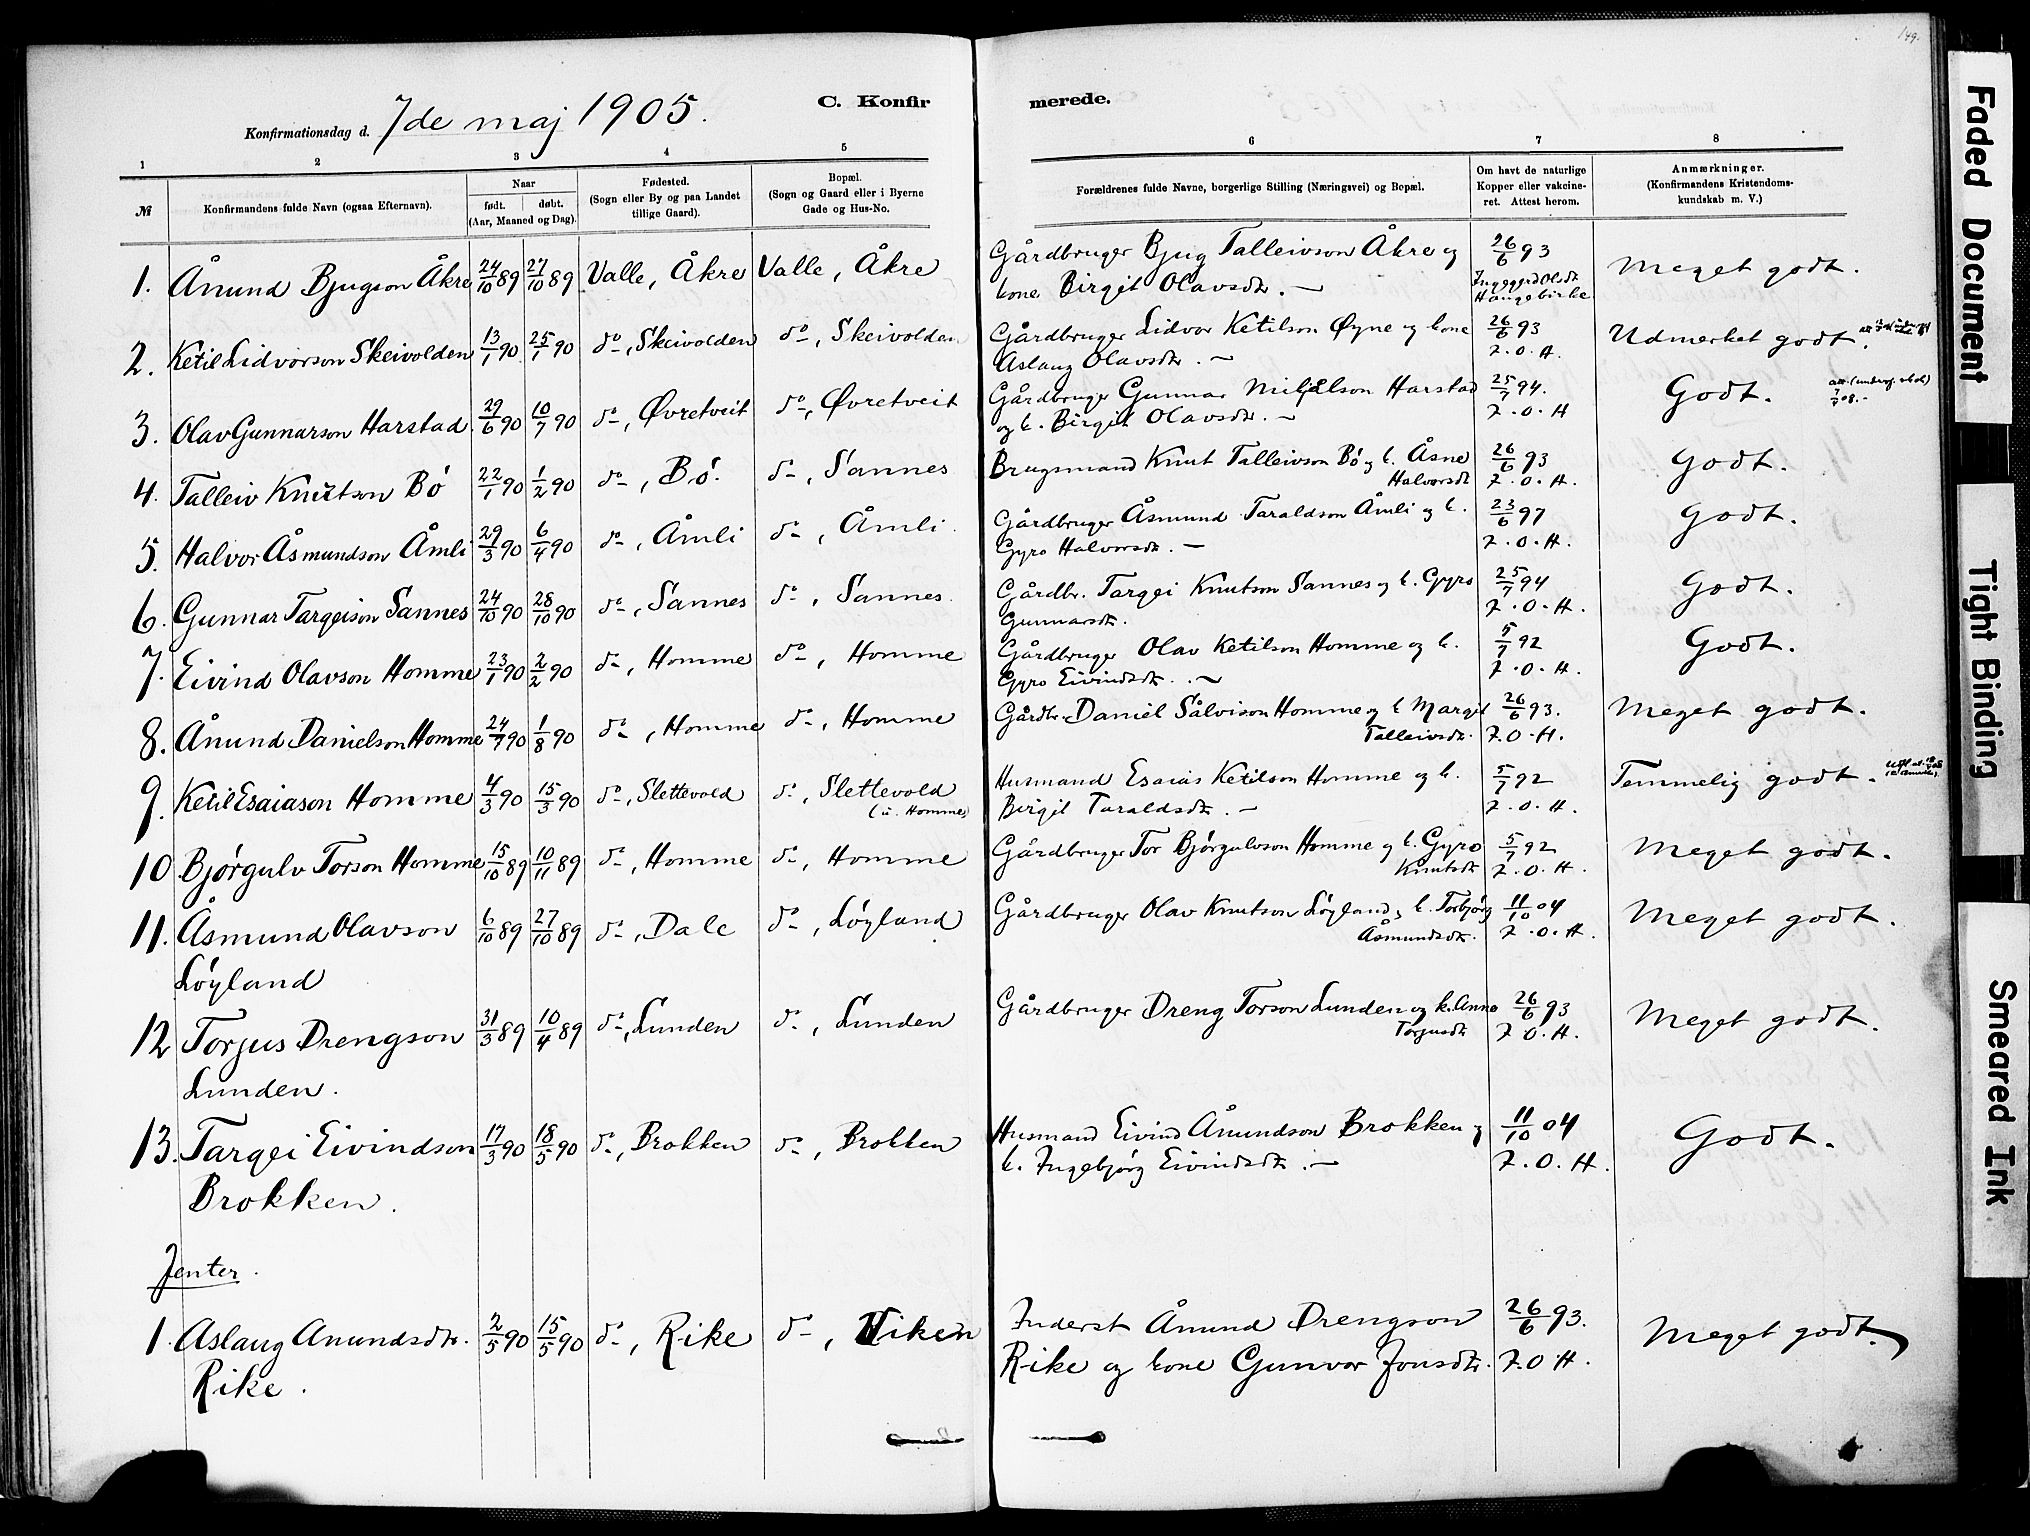 149.
C. Konfirmerede.
Konfirmationsdag d. 7de maj 1905.
1 2 3 4 5 6 7 8
№ Konfirmandens fulde Navn (ogsaa Efternavn). Naar født. døbt. (Aar, Maaned og Dag). Fødested. (Sogn eller By og paa Landet tillige Gaard). Bopæl. (Sogn og Gaard eller i Byerne Gade og Hus-No. Forældrenes fulde Navne, borgerlige Stilling (Næringsvei) og Bopæl. Om havt de naturlige Kopper eller vakcineret. Attest herom. Anmærkninger. (Konfirmandens Kristendomskundskab m. V.)
1. Ånund Bjugson Åkre 24/10 89 27/10 89 Valle, Åkre Valle, Åkre Gårdbruger Bjug Talleivson Åkre og kone Birgit Olavsdtr. — 26/6 93 Ingeggerd Olsdtr Haugebirke Meget godt.
2. Ketil Lidvorson Skeivolden 13/1 90. 25/1 90 do, Skeivolden do, Skeivolden Gårdbruger Lidvor Ketilson Øyne og kone Aslaug Olavsdtr. — 26/6 93 I.O.H. Udmerket godt.
3. Olav Gunnarson Harstad. 29/6 90 10/7 90 do, Øvretveit do, Øvretveit Gårdbruger Gunnar Harstad og k. Birgit Olavsdtr. — 25/7 94. I.O.H Godt.
4. Talleiv Knutson Bó 22/1 90 1/2 90 do, Bó. do, Sannes Brugsmand Knut Talleivson Bó og k. Åsne Halvorsdtr 26/6 93 I.O.H. Godt.
5. Halvor Åsmundson Åmli 29/3 90 6/4 90 do, Åmli do, Åmli. Gårdbruger Åsmund Taraldson Åmli og k. Gyro Halvorsdtr. — 23/6 97 I.O.H. Godt.
6. Gunnar Targeison Sannes 24/10 90 28/10 90 do, Sannes do, Sannes. Gårdbr. Targei Knutson Sannes og k. Gyro Gunnarsdtr. 25/7 94 I.O.H. Godt.
7. Eivind Olavson Homme 23/1 90 2/2 90 do, Homme do, Homme Gårdbruger Olav Ketilson Homme og k. Gyro Eivindsdtr. — 5/7 92 I.O.H. Godt.
8. Ånund Danielson Homme 24/7 90 1/8 90 do, Homme do, Homme Gårdbr. Daniel Sålvison Homme og k Margit Talleivsdtr. 26/6 93. I.O.H. Meget godt.
9. Ketil Esaiason Homme 4/3 90 15/3 90 do, Slettevold do, Slettevold (u. Homme) Husmand Esaias Ketilson Homme og k. Birgit Taraldsdtr. — 5/7 92 I.O.H. Temmelig godt.
10 Bjørgulv Torson Homme 15/10 89 10/11 89 do, Homme do, Homme Gårdbruger Tor Bjørgulvson Homme og k. Gyro Knutsdtr 5/7 92 I.O.H. Meget godt.
11. Åsmund Olavson Lóyland 6/10 89 27/10 89 do, Dale do, Lóyland Gårdbruger Olav Knutson Lóyland og k. Torbjórg Åsmundsdtr. 11/10 04 I.O.H. Meget godt.
12 Torjus Drengson Lunden. 31/3 89 10/4 89 do, Lunden do, Lunden Gårdbruger Dreng Torson Lunden og k. Anne Torjusdtr 26/6 93 I O.H. Meget godt.
13. Targei Eivindson Brokken. 17/3 90 18/5 90 do, Brokken do, Brokken Husmand Eivind Ånundson Brokken og k. Ingebjórg Eivindsdtr. — 11/10 04 I.O.H. Godt.
Jenter.
1. Aslaug Anundsdtr. Rike. 2/5 90 15/5 90 do, Rike do, Viken Inderst Ånund Drengson Rike og kone Gunvor Jonsdtr. 26/6 93. I.O.H. Meget godt.
Faded Document
Tight Binding
Smeared Ink